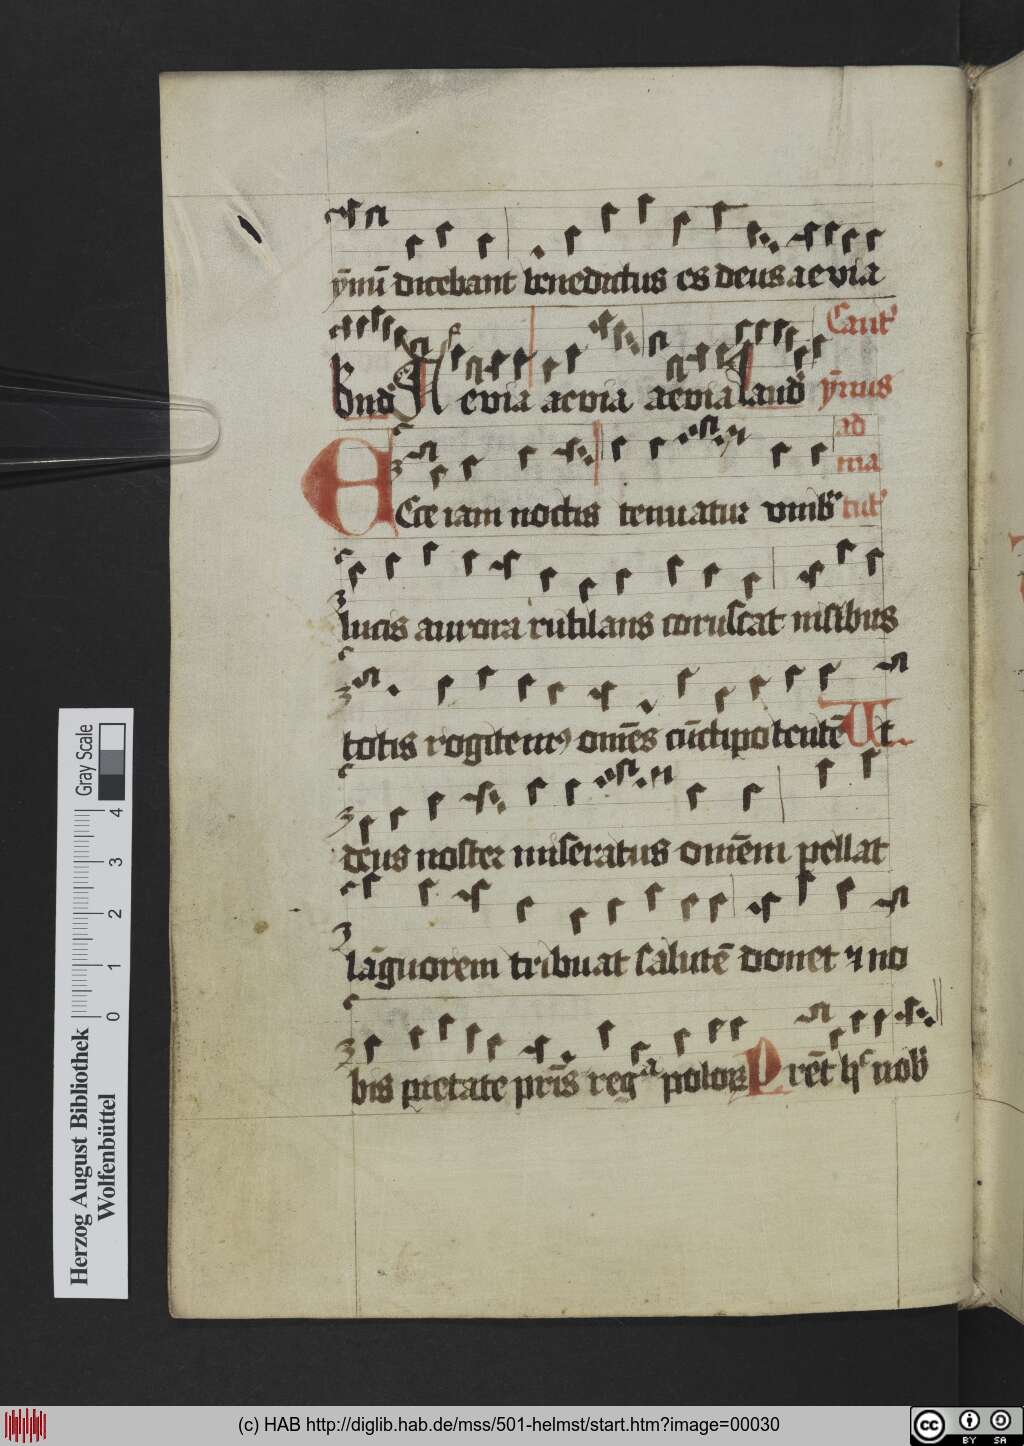 ȳmū dicebant benedictus es deus aevia
Cant'
Bnd' Aevia aevia aevia laud' ȳmus
ad
ma
Ecce iam noctis tenuatur umb" tut'
lucis aurora rutilans coruscat nisibus
totis rogitem9 om̄s cūctipotentē Ut
deus noster miseratus omēm pellat
lāguorem tribuat salutē donet ⁊ no
bis pietate pr̄is regᵃ poloꝝ Prēt hͨ nob'
Gray Scale
0 1 2 3 4
Herzog August Bibliothek
Wolfenbüttel
(c) HAB http://diglib.hab.de/mss/501-helmst/start.htm?image=00030
cc BY SA